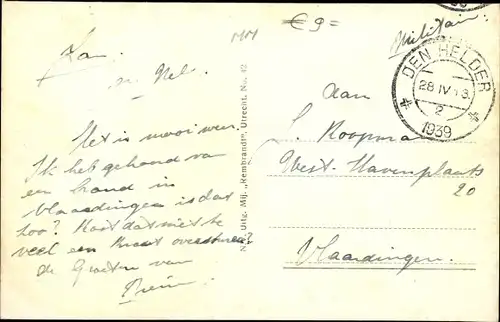 MM
€ 9=
Militair.
DEN HELDER
28 IV 13.
2
1939
Jan
en Nel.
Het is mooi weer.
Ik heb gehoord van
een hond in
Vlaardingen is dat
zoo? Kost dat niet te
veel een
de Groeten van
N.V. Uitg. Mij. „Rembrandt", Utrecht. No. 42
Aan
S. Koopman
West-Havenplaats
20
Vlaardingen.